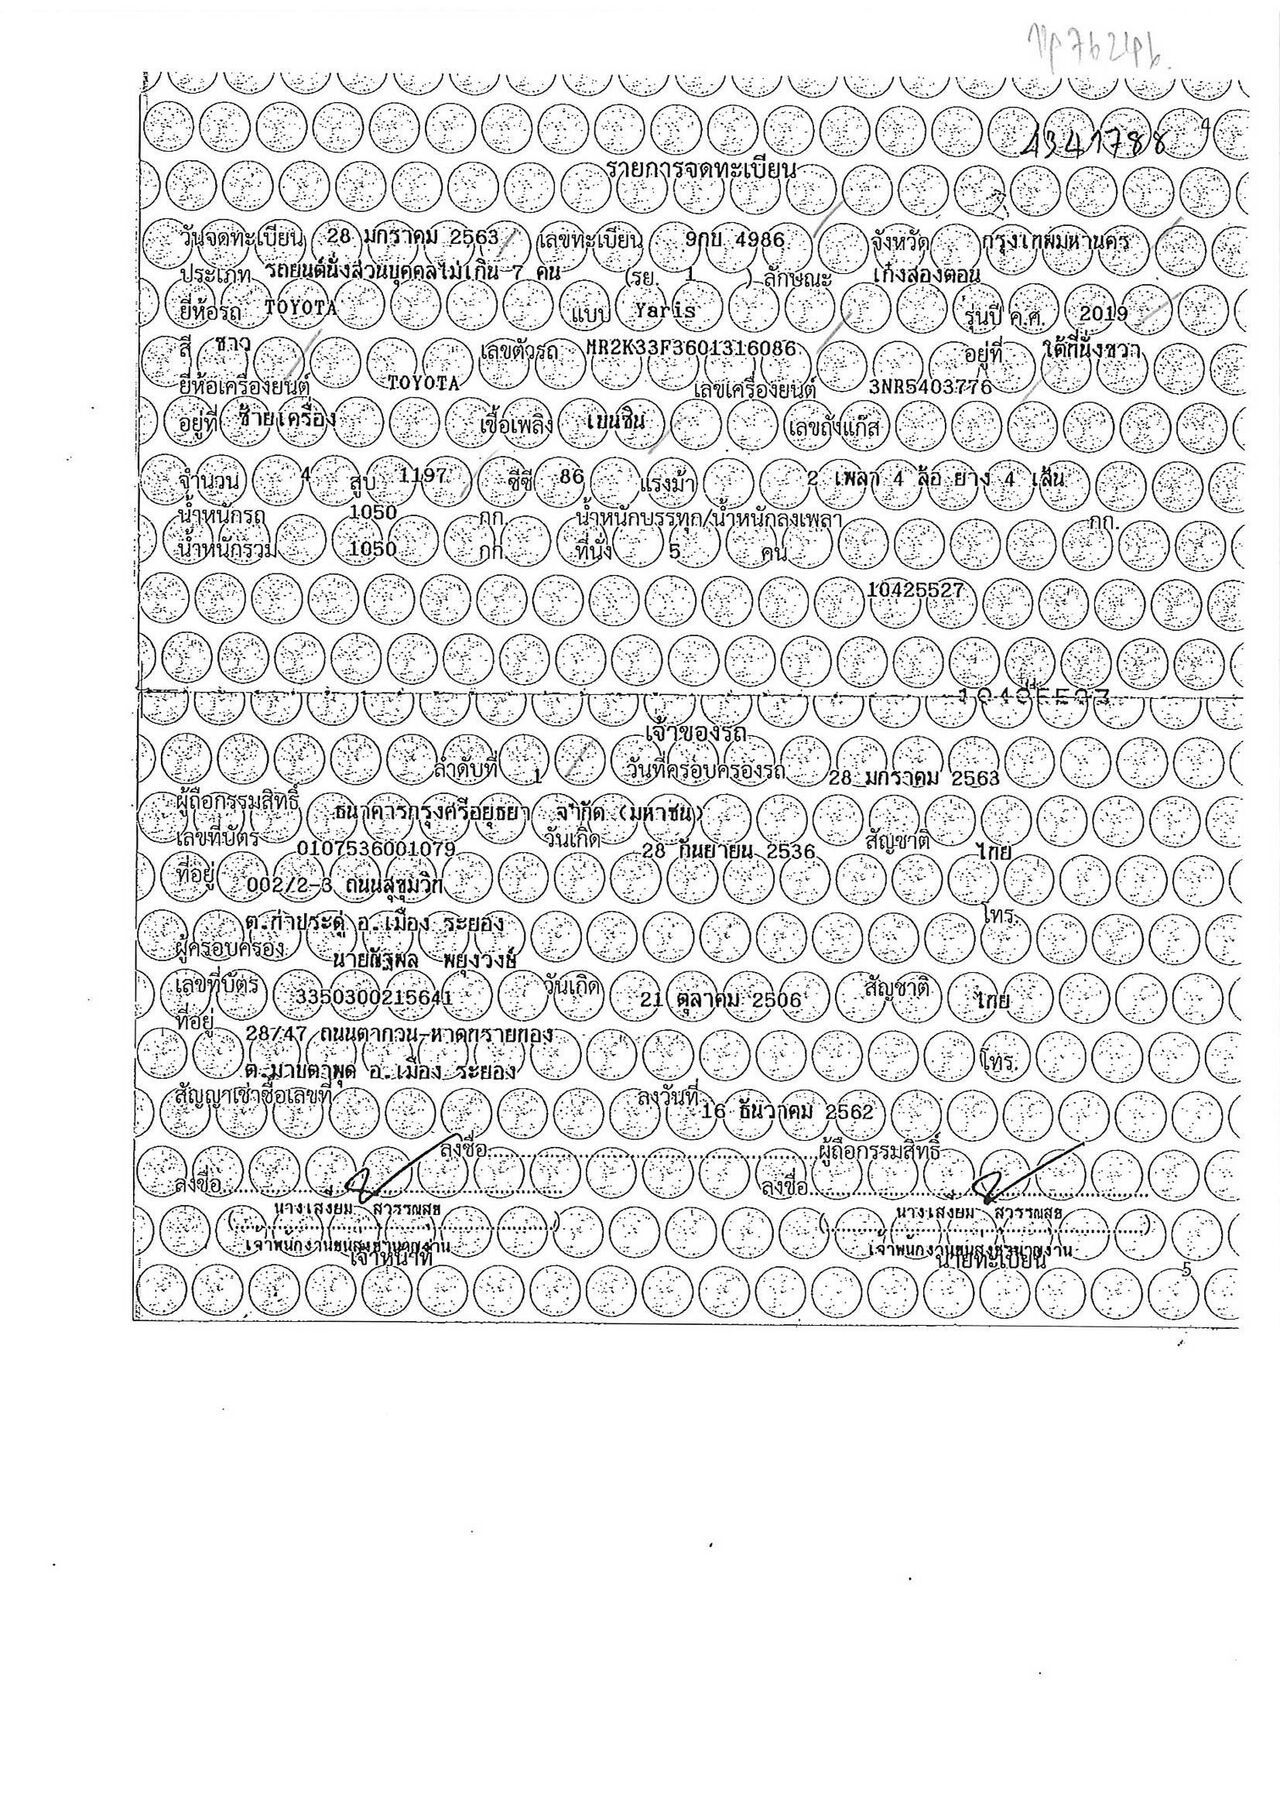 4341788
รายการจดทะเบียน
วันจดทะเบียน 28 มกราคม 2563 เลขทะเบียน 9กย 4986 จังหวัด กรุงเทพมหานคร
ประเภท รถยนต์นั่งส่วนบุคคลไม่เกิน 7 คน (รย. 1 ) ลักษณะ เก๋งสองตอน
ยี่ห้อรถ TOYOTA แบบ Yaris รุ่นปี ค.ศ. 2019
สี ขาว เลขตัวรถ MR2K33F3601316086 อยู่ที่ ใต้ที่นั่งขวา
ยี่ห้อเครื่องยนต์ TOYOTA เลขเครื่องยนต์ 3NR5403776
อยู่ที่ ซ้ายเครื่อง เชื้อเพลิง เบนซิน เลขถังแก๊ส
จำนวน 4 สูบ 1197 ซีซี 86 แรงม้า 2 เพลา 4 ล้อ ยาง 4 เส้น
น้ำหนักรถ 1050 กก. น้ำหนักบรรทุก/น้ำหนักลงเพลา กก.
น้ำหนักรวม 1050 กก. ที่นั่ง 5 คน
10425527
เจ้าของรถ
ลำดับที่ 1 วันที่ครอบครองรถ 28 มกราคม 2563
ผู้ถือกรรมสิทธิ์ ธนาคารกรุงศรีอยุธยา จำกัด (มหาชน)
เลขที่บัตร 0107536001079 วันเกิด 28 กันยายน 2536 สัญชาติ ไทย
ที่อยู่ 002/2-3 ถนนสุขุมวิท
ต.ท่าประดู่ อ.เมือง ระยอง โทร.
ผู้ครอบครอง นายณัฐพล พยุงวงษ์
เลขที่บัตร 3350300215641 วันเกิด 21 ตุลาคม 2506 สัญชาติ ไทย
ที่อยู่ 28/47 ถนนตากวน-หาดทรายทอง
ต.มาบตาพุด อ.เมือง ระยอง โทร.
สัญญาเช่าซื้อเลขที่ ลงวันที่ 16 ธันวาคม 2562
ลงชื่อ ผู้ถือกรรมสิทธิ์
ลงชื่อ ลงชื่อ
นางเสงี่ยม สุวรรณสุข นางเสงี่ยม สุวรรณสุข
เจ้าพนักงานขนส่งชำนาญงาน เจ้าพนักงานขนส่งชำนาญงาน
เจ้าหน้าที่ นายทะเบียน
5